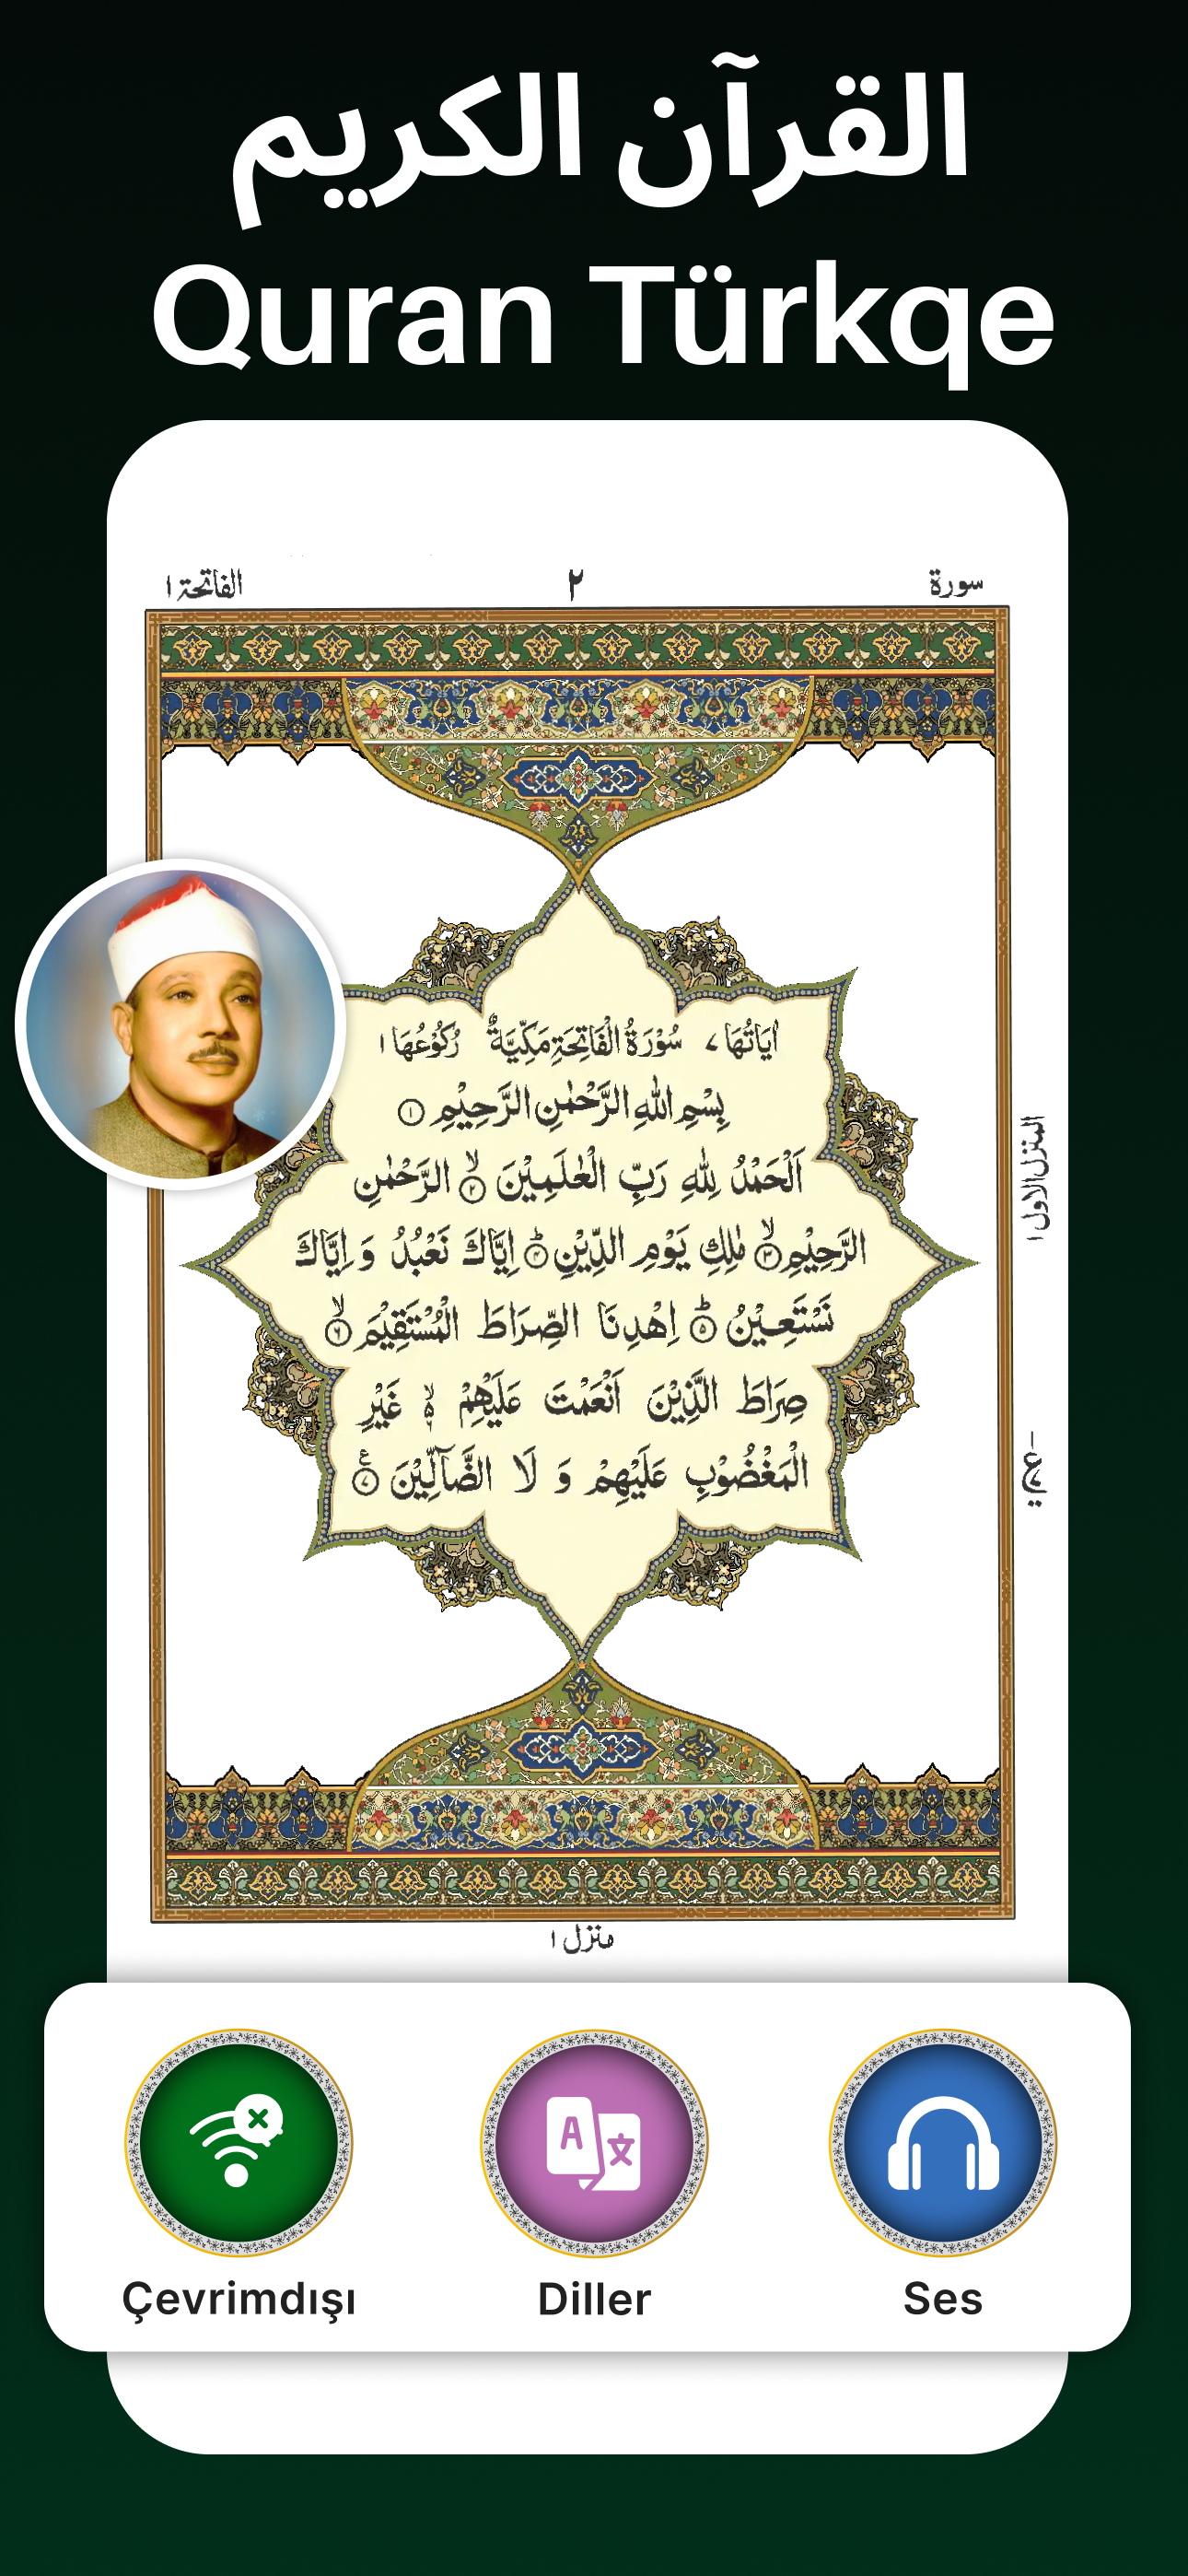 القرآن الكريم
Quran Türkqe
سورة ٢ الفاتحة ١
اٰيَاتُهَا ٧ سُوْرَةُ الْفَاتِحَةِ مَكِّيَّةٌ رُكُوْعُهَا ١
بِسْمِ اللّٰهِ الرَّحْمٰنِ الرَّحِيْمِ ١
اَلْحَمْدُ لِلّٰهِ رَبِّ الْعٰلَمِيْنَ ۙ ٢ الرَّحْمٰنِ
الرَّحِيْمِ ۙ ٣ مٰلِكِ يَوْمِ الدِّيْنِ ؕ ٤ اِيَّاكَ نَعْبُدُ وَ اِيَّاكَ
نَسْتَعِيْنُ ؕ ٥ اِهْدِنَا الصِّرَاطَ الْمُسْتَقِيْمَ ۙ ٦
صِرَاطَ الَّذِيْنَ اَنْعَمْتَ عَلَيْهِمْ ۙ۬ ۙ غَيْرِ
الْمَغْضُوْبِ عَلَيْهِمْ وَ لَا الضَّآلِّيْنَ ٧
المنزل الاول ١
منزل ١
Çevrimdışı Diller Ses